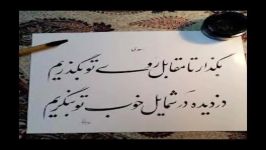 سعدی
بگذار تا مقابل روی تو بگذریم
دزدیده در شمایل خوب تو بنگریم